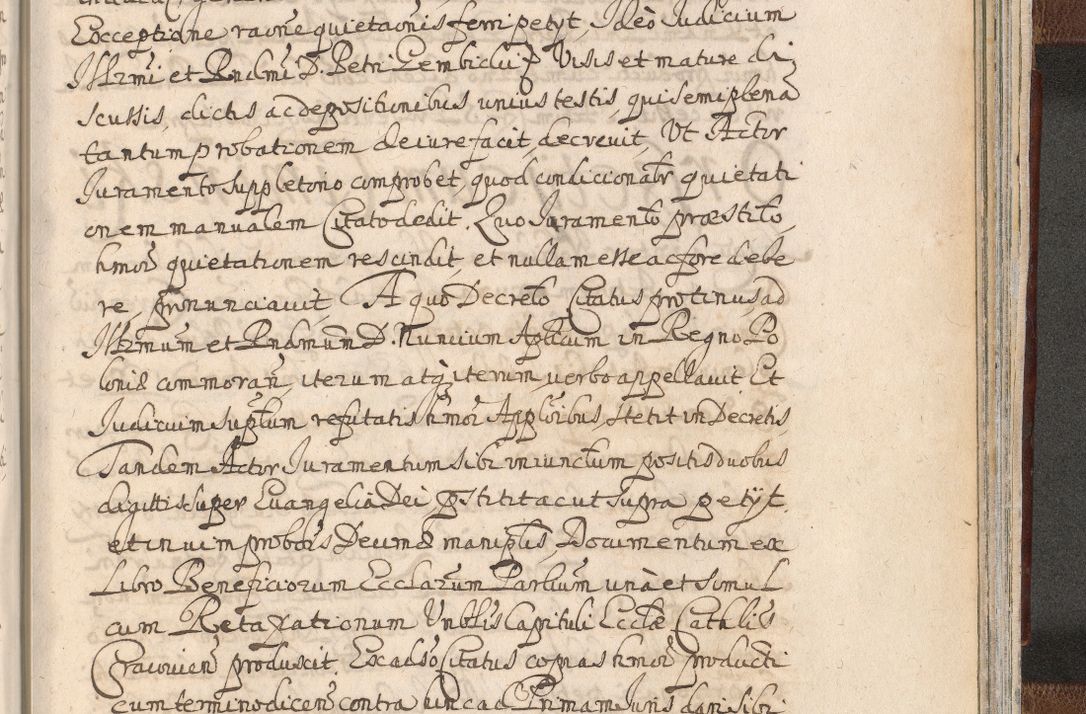 Exceptione raõne quietaõnis ferri petyt, Ideò Iudicium
Illrmi et Rndmi D. Petri Gembicki Ep̃ Visis et mature di
scussis, dictis ac depositionibus unius testis, qui semiplenã
tantum probationem de iure facit, decrevit, Ut Actor
Iuramento suppletorio comprobet, quod condicionatr̃ quietati
onem manualem Citato dedit. Quo Iuramento præstito,
hmoĩ quietationem rescindit, et nullam esse ac fore debe
re, pronunciavit, A quo Decreto Citatus protinus, ad
Illrmum et Rndmum D. Nuncium Aplicum in Regno Po
loniæ commoran̄, iterum atq̃ iterum verbo appellavit Et
Iudicium suptum refutatis hmoĩ Applõibus, stetit in Decretis,
Tandem Actor Iuramentum sibi iniunctum positis duobus
digittis super Evangelia Dei pstitit ac ut supra petyt,
et in vim probõis Decimæ maniplis, Documentum ex
Libro Beneficiorum Ecclarum Partium unà et simul
cum Retaxationum Vnbilis Capituli Ecclæ Cathlis
Cracovien̄ produxit. Ex adṽso Citatus copias hmoĩ producti
cum termino dicen̄ contra hinc ad Primam Iuris dari sibi